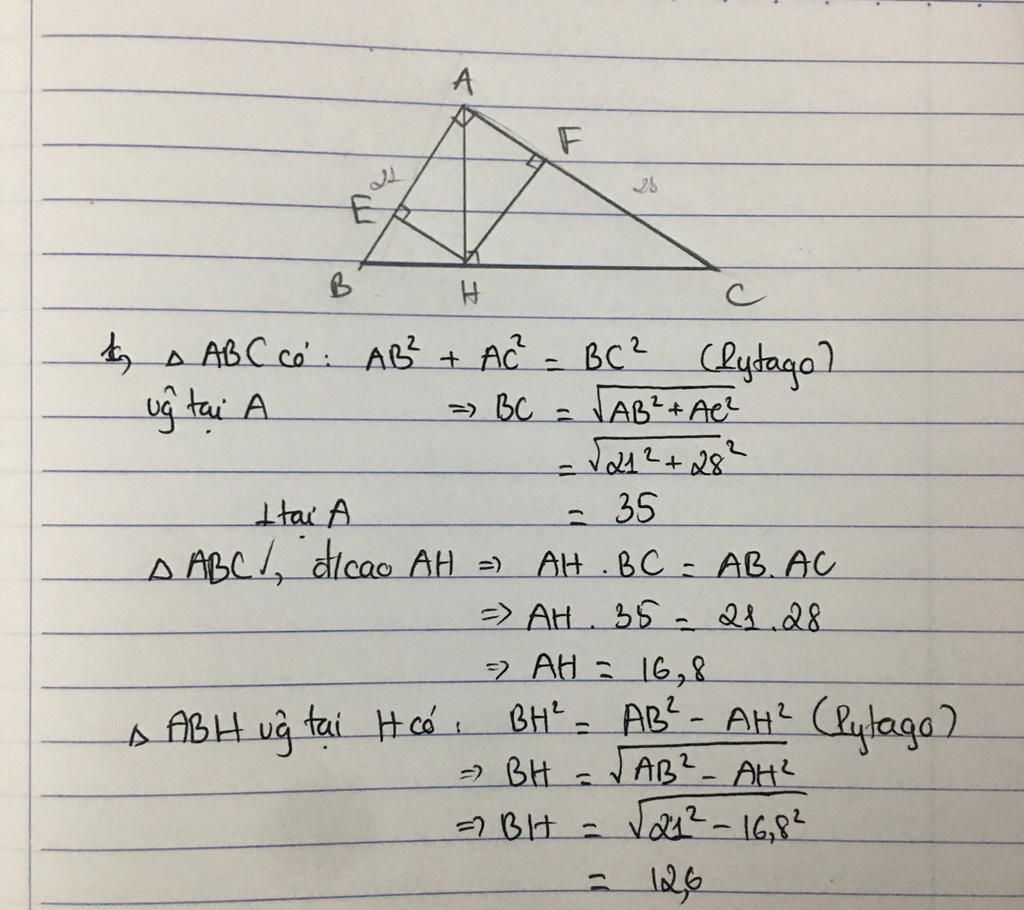 A
F
21
28
E
B
H
C
1, Δ ABC có: AB² + AC² = BC² (Pytago)
vg tại A => BC = √AB² + AC²
= √21² + 28²
⊥ tại A = 35
Δ ABC /, đ/cao AH => AH . BC = AB. AC
=> AH . 35 = 21 . 28
=> AH = 16,8
Δ ABH vg tại H có: BH² = AB² - AH² (Pytago)
=> BH = √AB² - AH²
=> BH = √21² - 16,8²
= 12,6